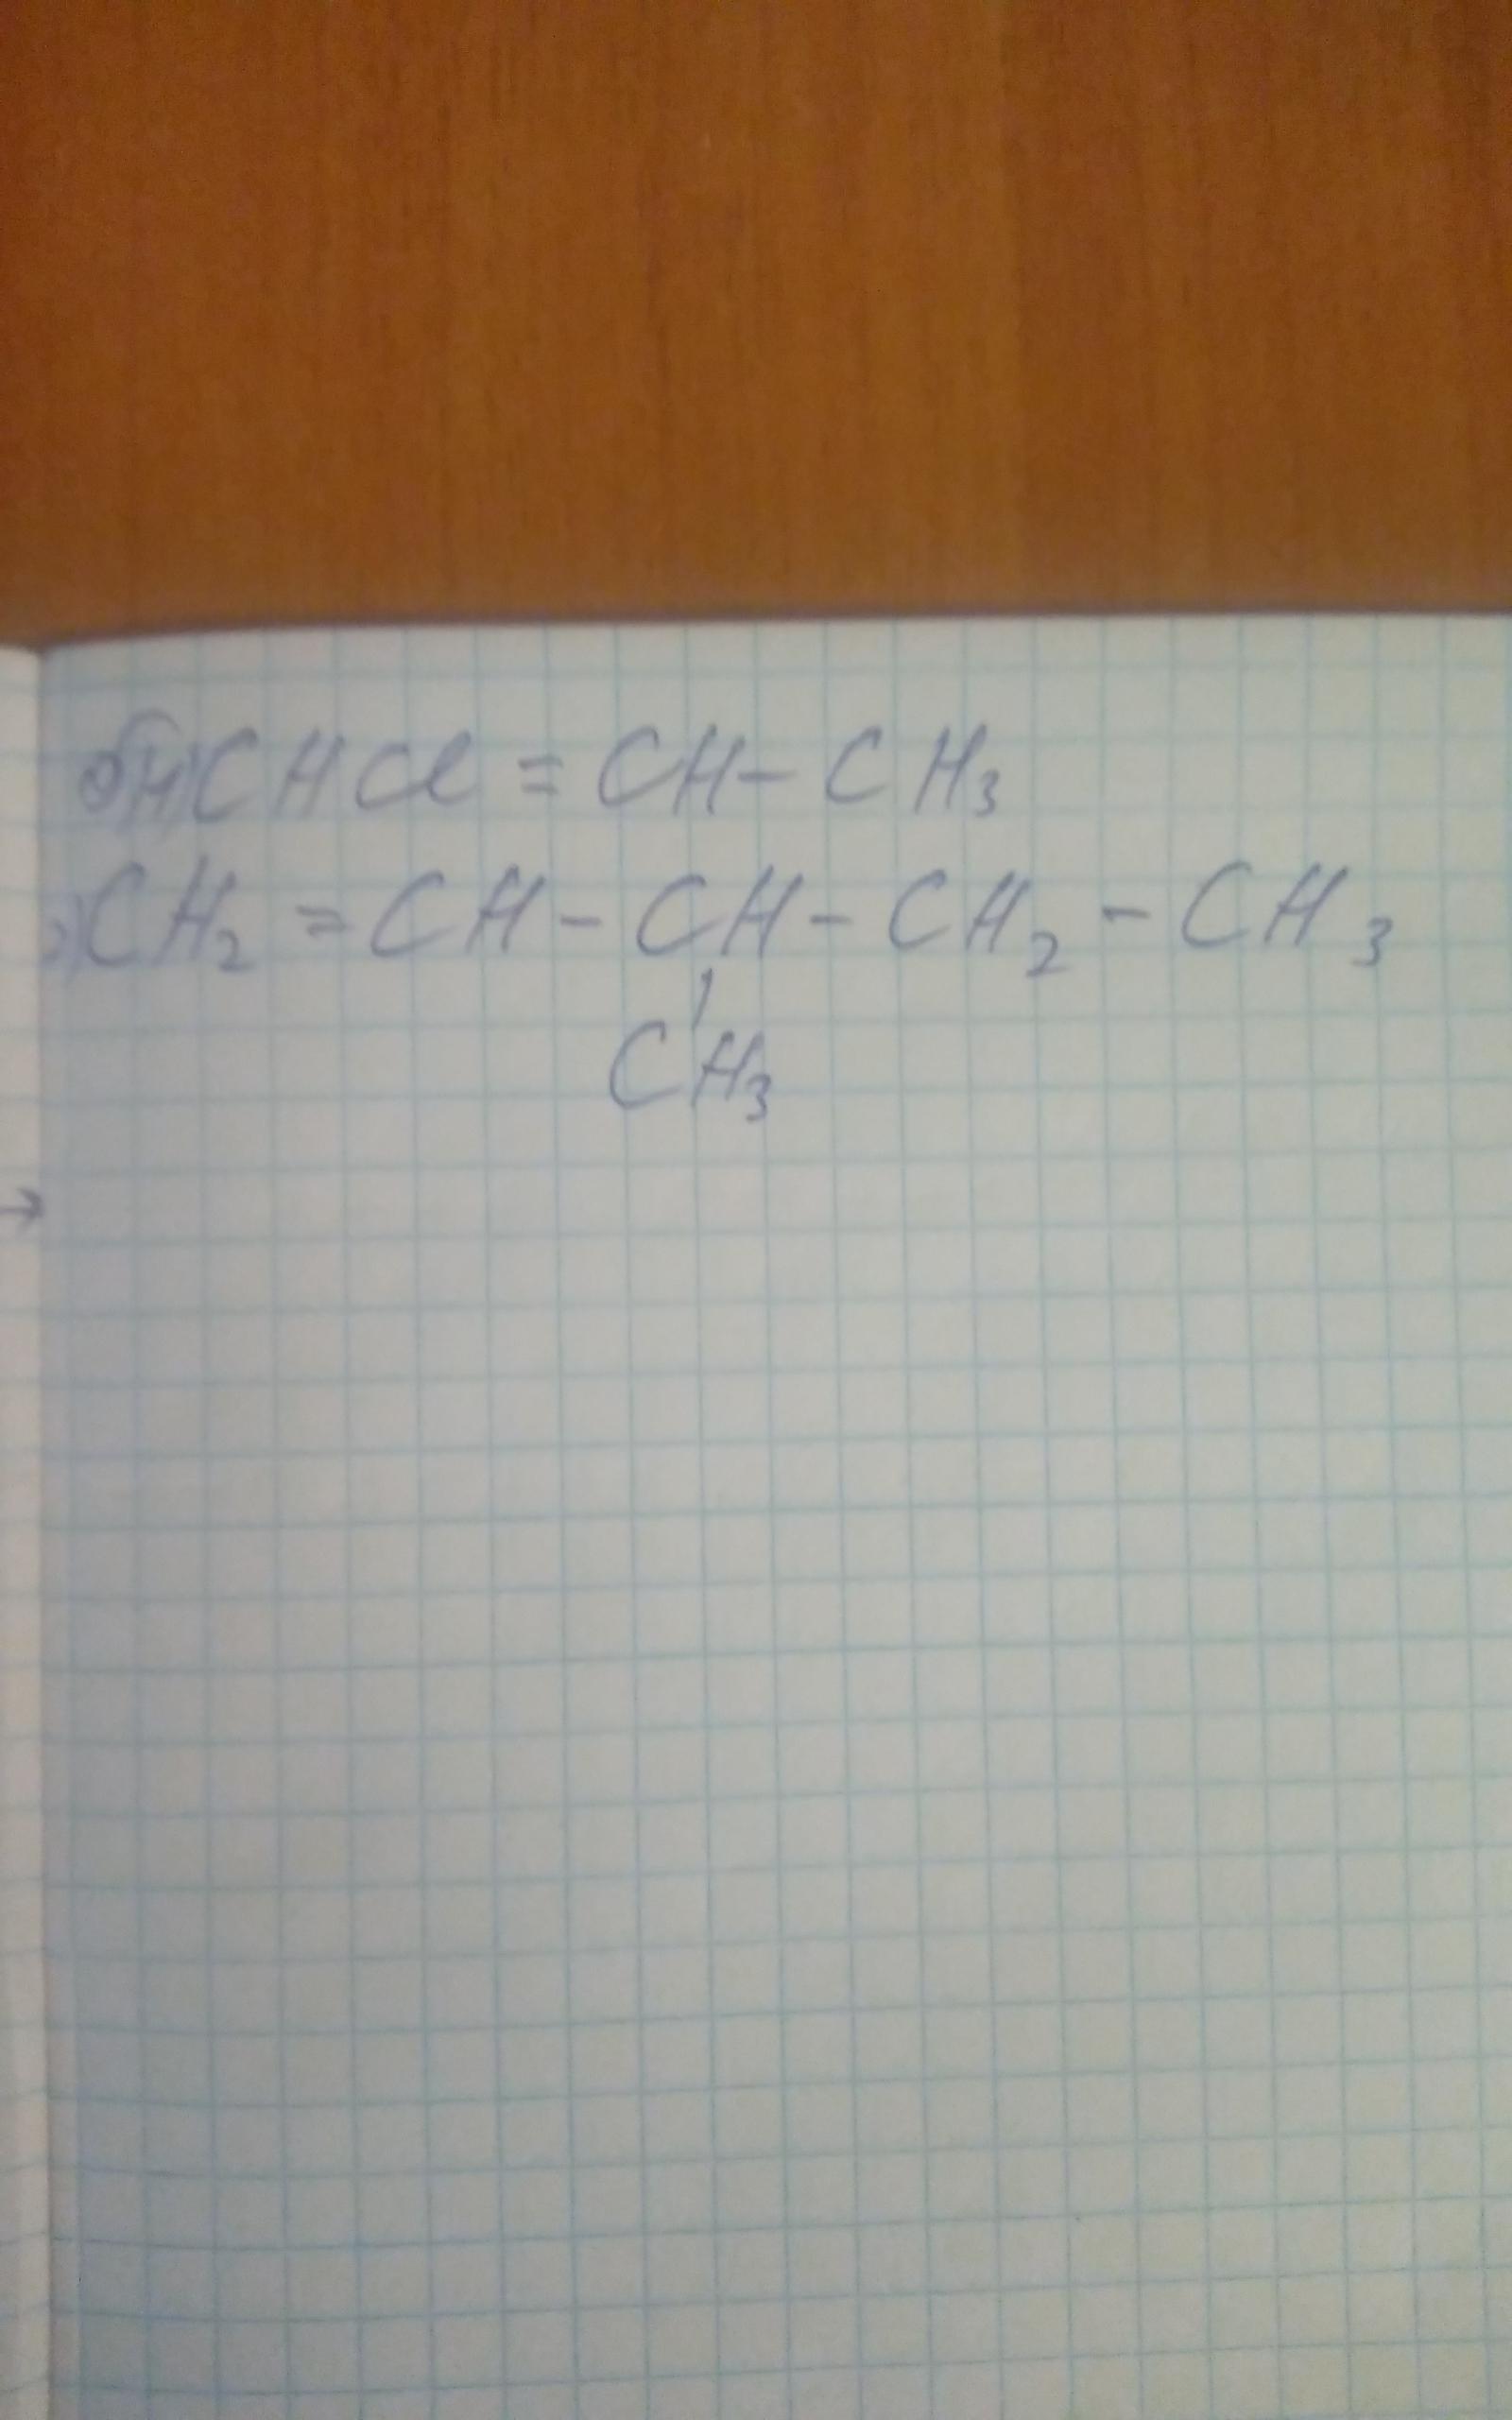 CHCl = CH - CH₃
CH₂ = CH - CH - CH₂ - CH₃
CH₃
→